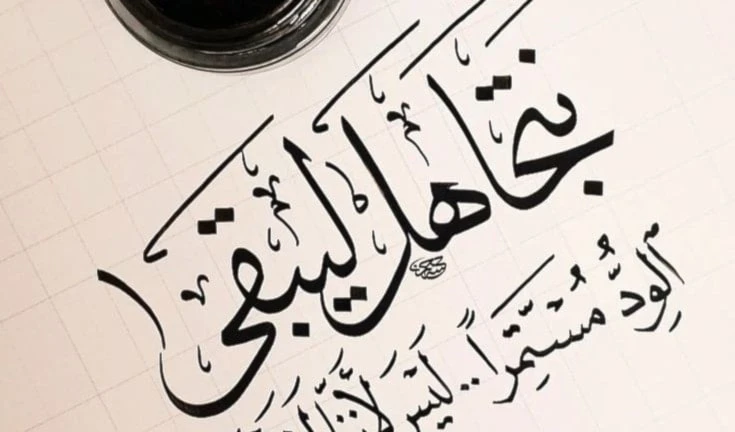 نتجاهل ليبقى
الوِدُّ مُسْتَمِّراً .. لَيْسَ لأننا